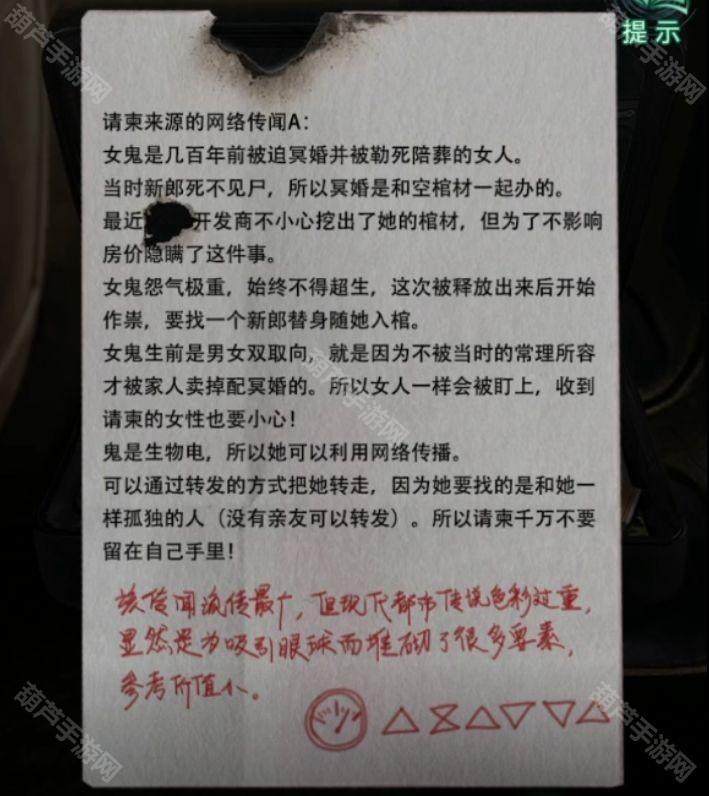 葫芦手游网
葫芦手游网
提示
请柬来源的网络传闻A:
女鬼是几百年前被迫冥婚并被勒死陪葬的女人。
当时新郎死不见尸，所以冥婚是和空棺材一起办的。
最近 开发商不小心挖出了她的棺材，但为了不影响
房价隐瞒了这件事。
女鬼怨气极重，始终不得超生，这次被释放出来后开始
作祟，要找一个新郎替身随她入棺。
女鬼生前是男女双取向，就是因为不被当时的常理所容
才被家人卖掉配冥婚的。所以女人一样会被盯上，收到
请柬的女性也要小心！
葫芦手游网
鬼是生物电，所以她可以利用网络传播。
可以通过转发的方式把她转走，因为她要找的是和她一
样孤独的人（没有亲友可以转发）。所以请柬千万不要
留在自己手里！
该传闻流传最广，但现代都市传说色彩过重，
显然是为吸引眼球而堆砌了很多要素，
参考价值小。
葫芦手游网
葫芦手游网